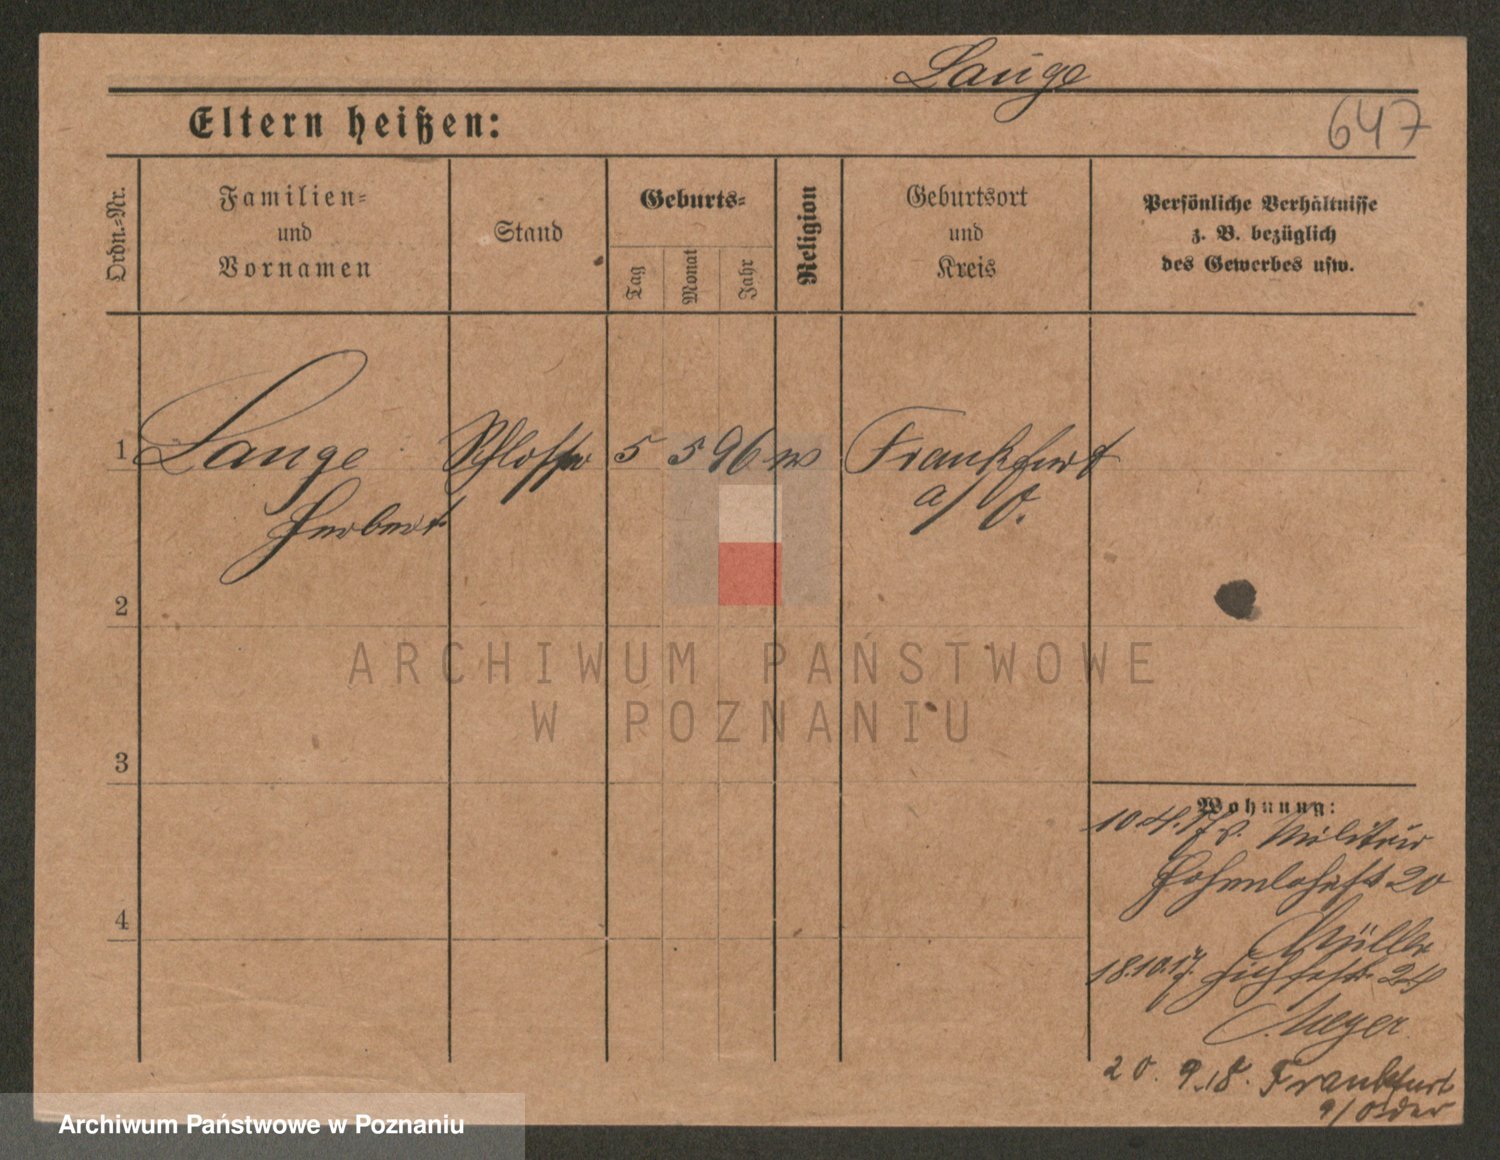 Lange
647
Eltern heißen:
Ordn.=Nr.
Familien=
und
Vornamen
Stand
Geburts=
Tag
Monat
Jahr
Religion
Geburtsort
und
Kreis
Persönliche Verhältnisse
z. B. bezüglich
des Gewerbes usw.
1
Lange
Herbert
Schlosser
5
5
96
Frankfurt
a/O.
2
3
4
Wohnung:
10.4.17 v. Militär
20
Müller
18.10.17. 24
Meyer
20. 9.18. Frankfurt
a/Oder
ARCHIWUM PAŃSTWOWE
W POZNANIU
Archiwum Państwowe w Poznaniu